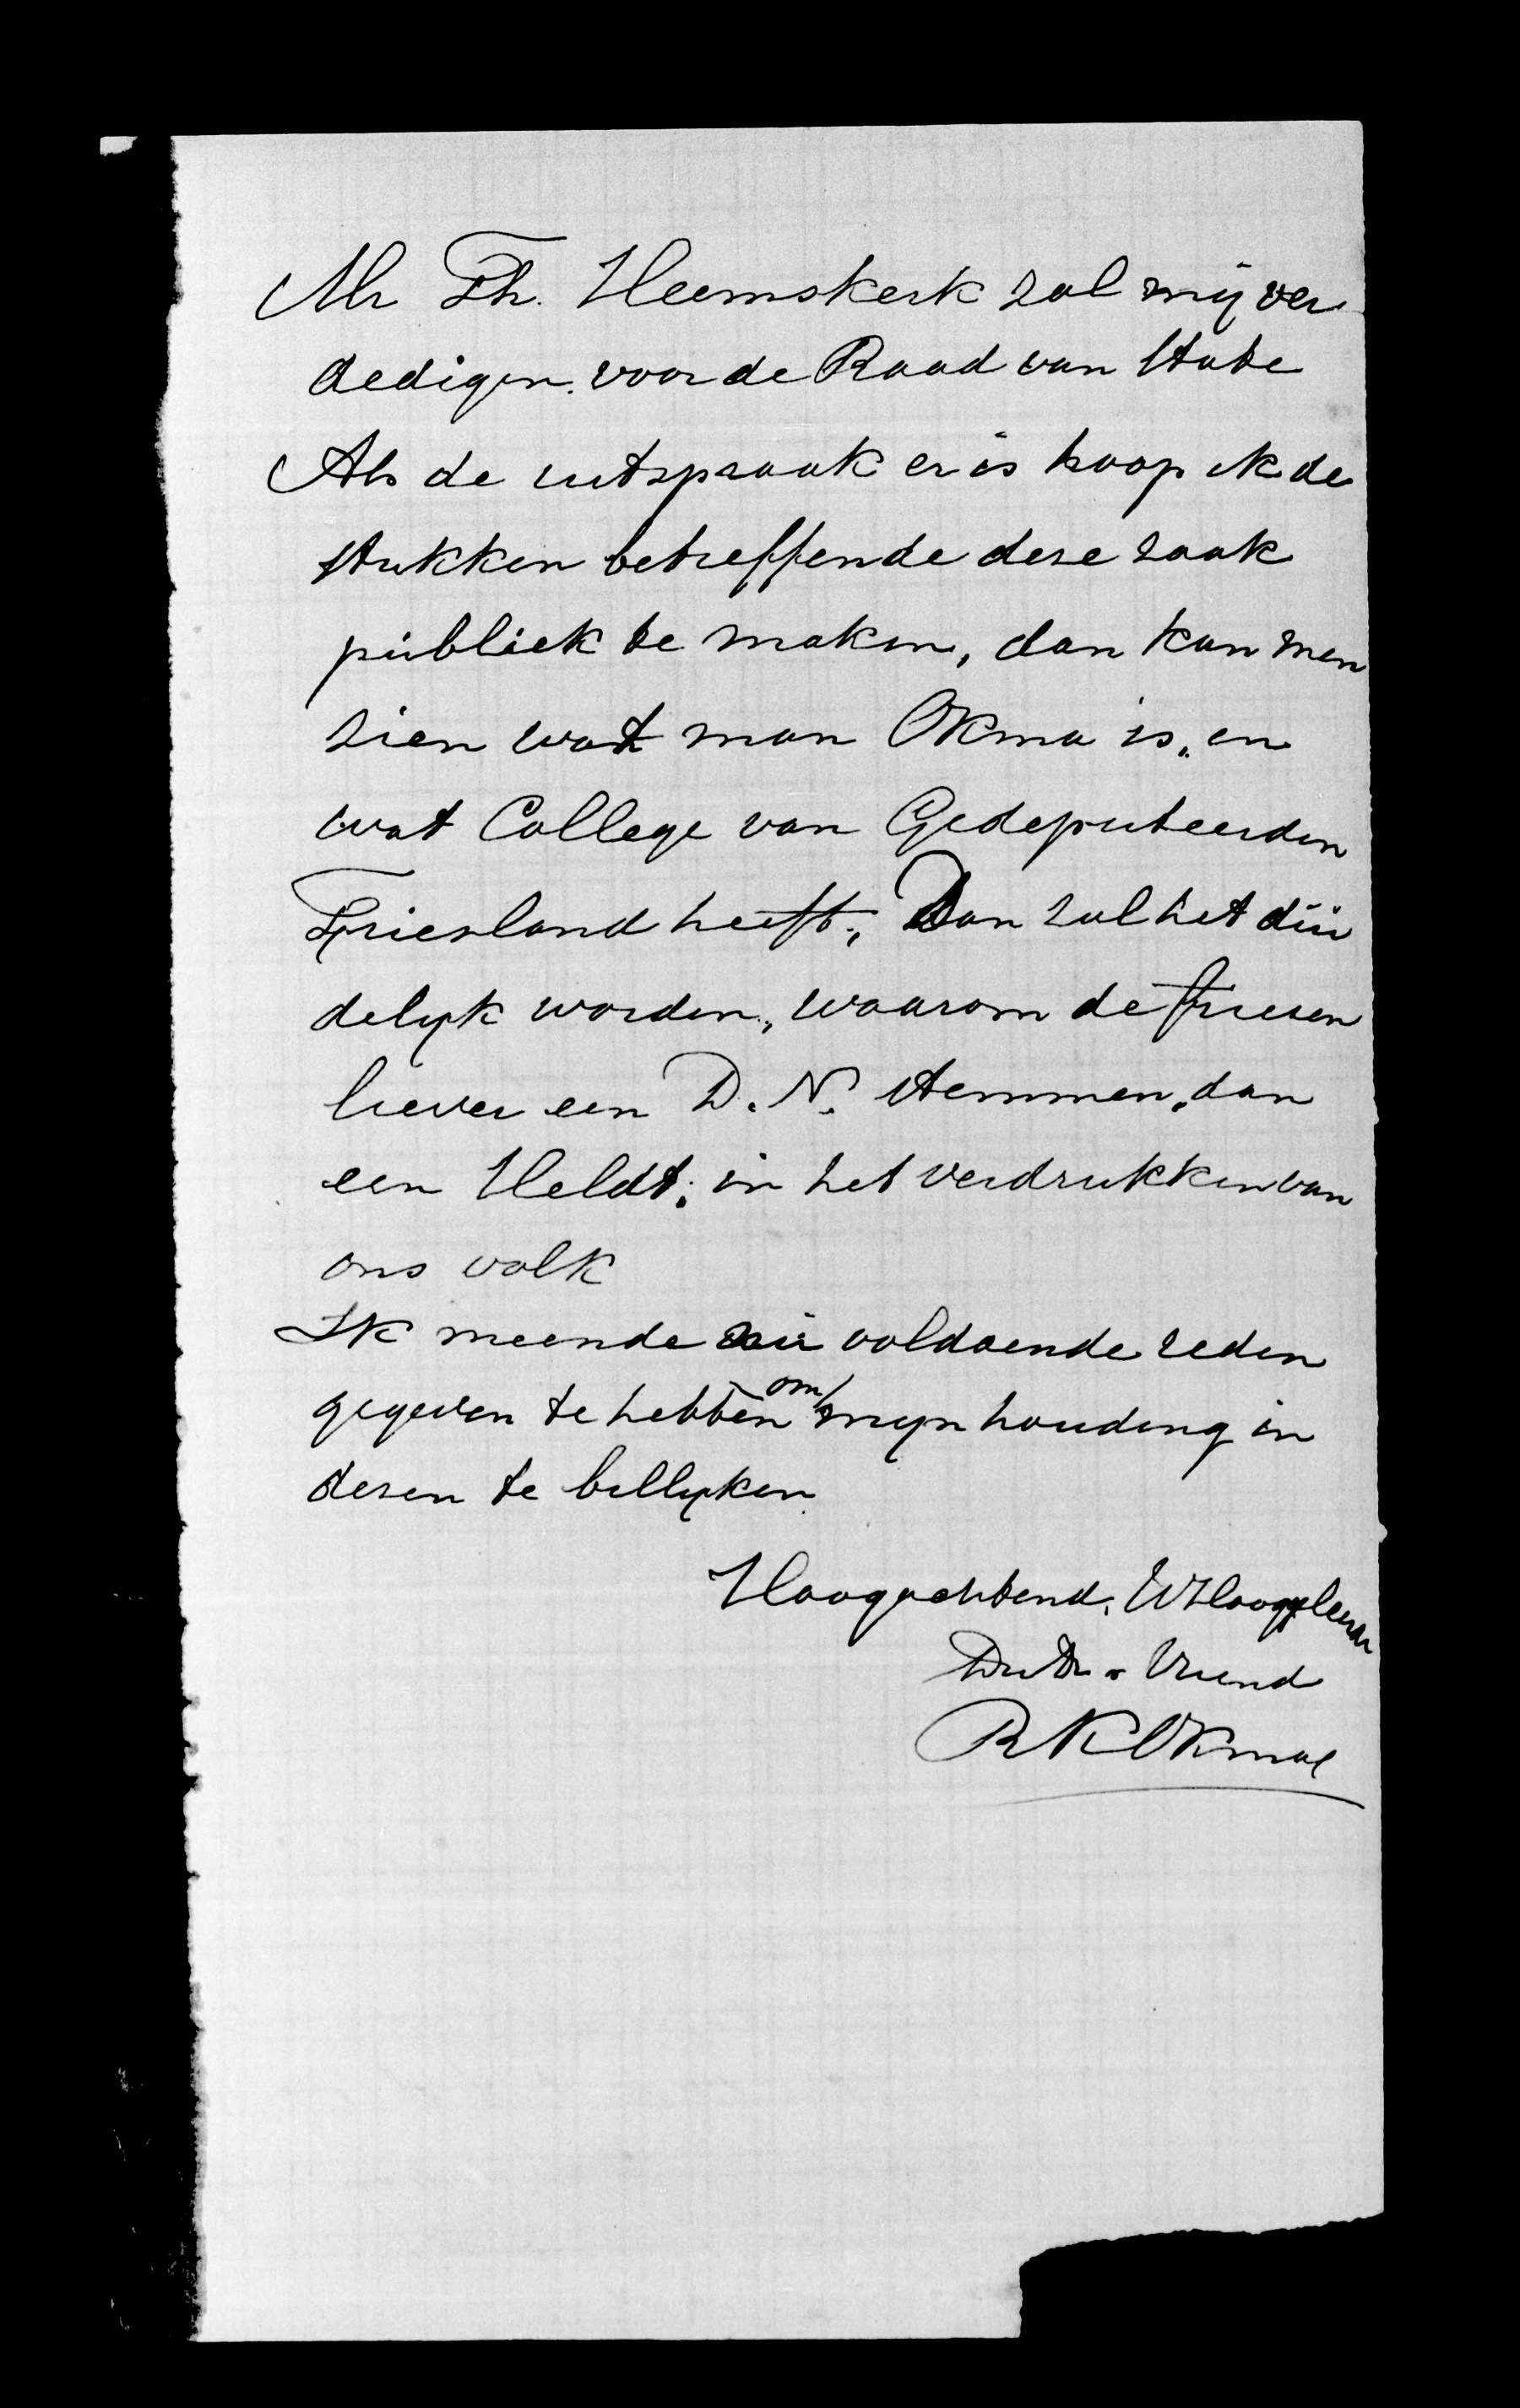 Mr Th. Heemskerk zal mij ver
dedigen voor de Raad van State
Als de uitspraak er is hoop ik de
stukken betreffende deze zaak
publiek te maken, dan kan men
zien wat man Okma is, en
wat College van Gedeputeerden
Friesland heeft; Dan zal het dui
delijk worden, waarom de friesen
liever een D. N. stemmen, dan
een Heldt; in het verdrukken van
ons volk
Ik meende voldoende reden
gegeven te hebben om mijn houding in
dezen te billijken
Hoogachtend, UHooggeleerde
Vriend
RKOkma